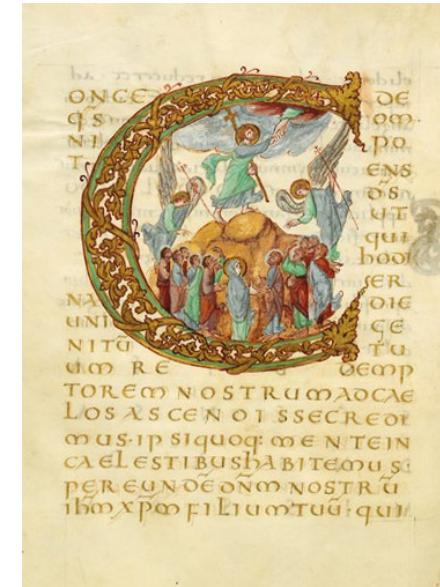 CONCE DE
q̄s OM
NI PO
T ENS
D̄S
UT
qui
hodi
ER
NA DIE
UNI GE
NITŪ TU
UM RE DEMP
TOREM NOSTRUM AD CAE
LOS ASCENDISSE CREDI
MUS·IPSI QUOQ: MENTE IN
CAELESTIBUS hABITEMUS·
PER EUNDE D̄N̄M NOSTRŪ
ih̄m xp̄m FILIUM TUŪ: QUI